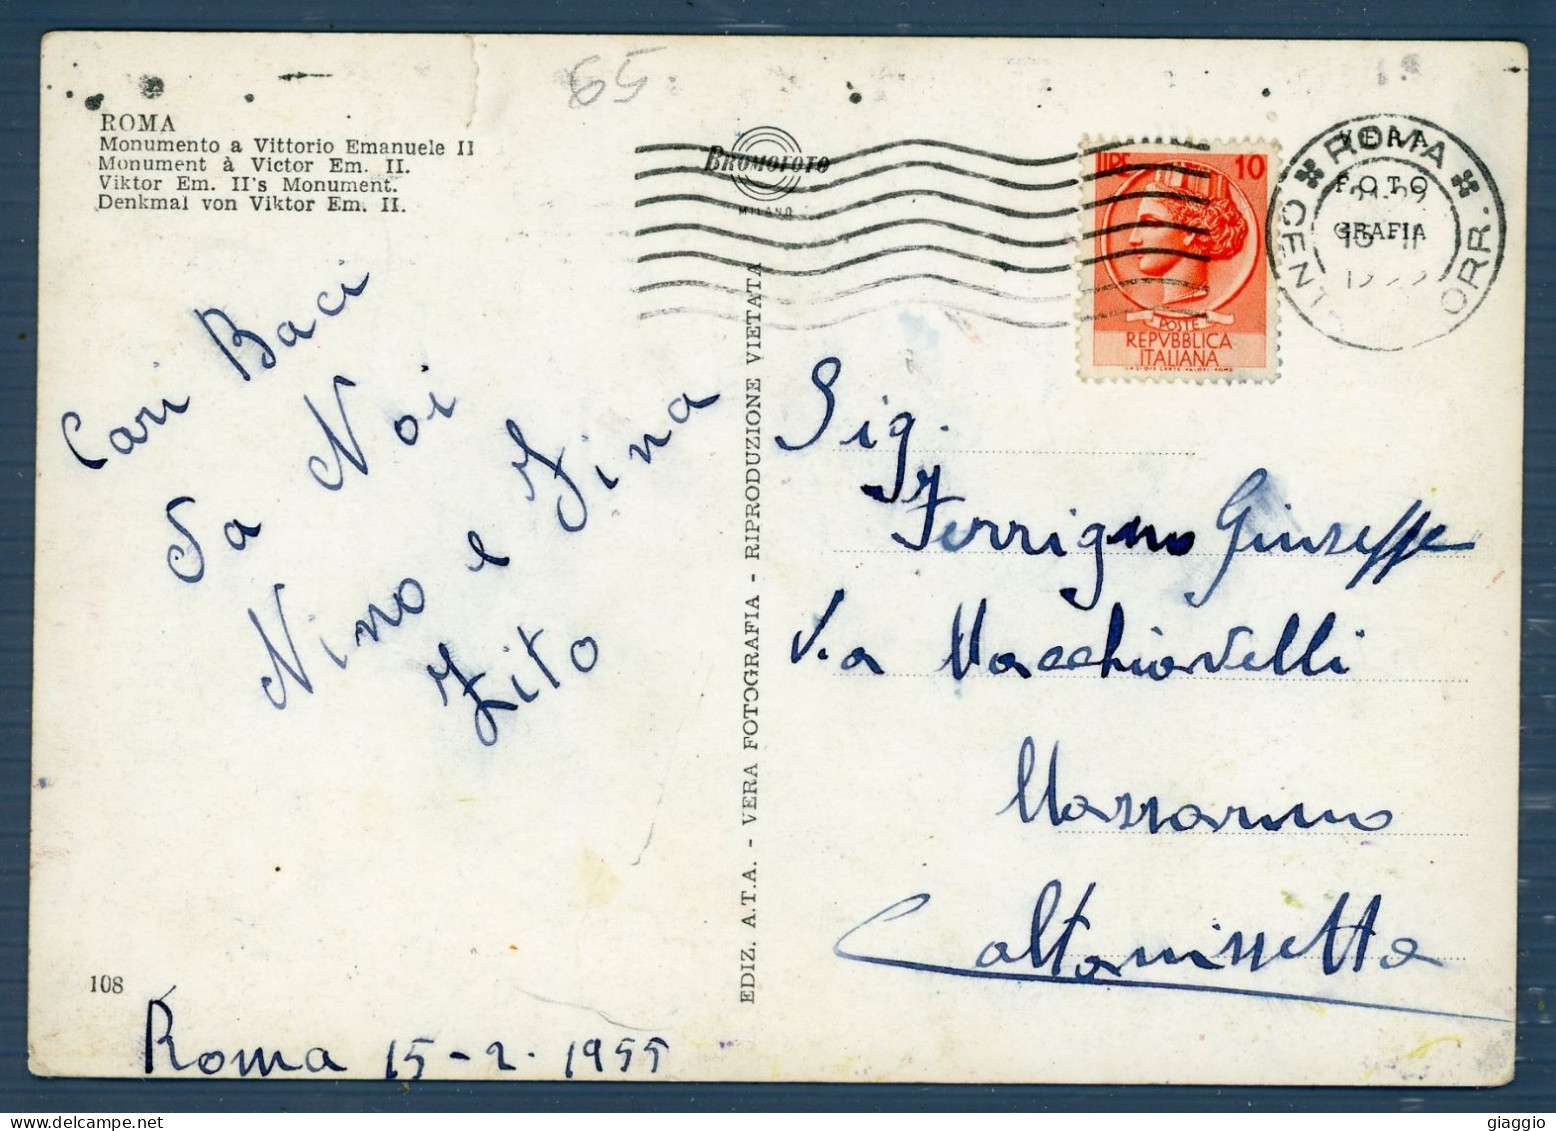 65
ROMA
Monumento a Vittorio Emanuele II
Monument à Victor Em. II.
Viktor Em. II's Monument.
Denkmal von Viktor Em. II.
BROMOFOTO
MILANO
LIRE 10
POSTE
REPVBBLICA
ITALIANA
ROMA
VERA
FOTO
GRAFIA
Cari Baci
Da Noi
Nino e Zina
Zito
EDIZ. A.T.A. - VERA FOTOGRAFIA - RIPRODUZIONE VIETATA
Sig.
Ferrigno Giuseppe
Via Macchiavelli
Mazzarino
Caltanissetta
108
Roma 15-2-1955
giaggio